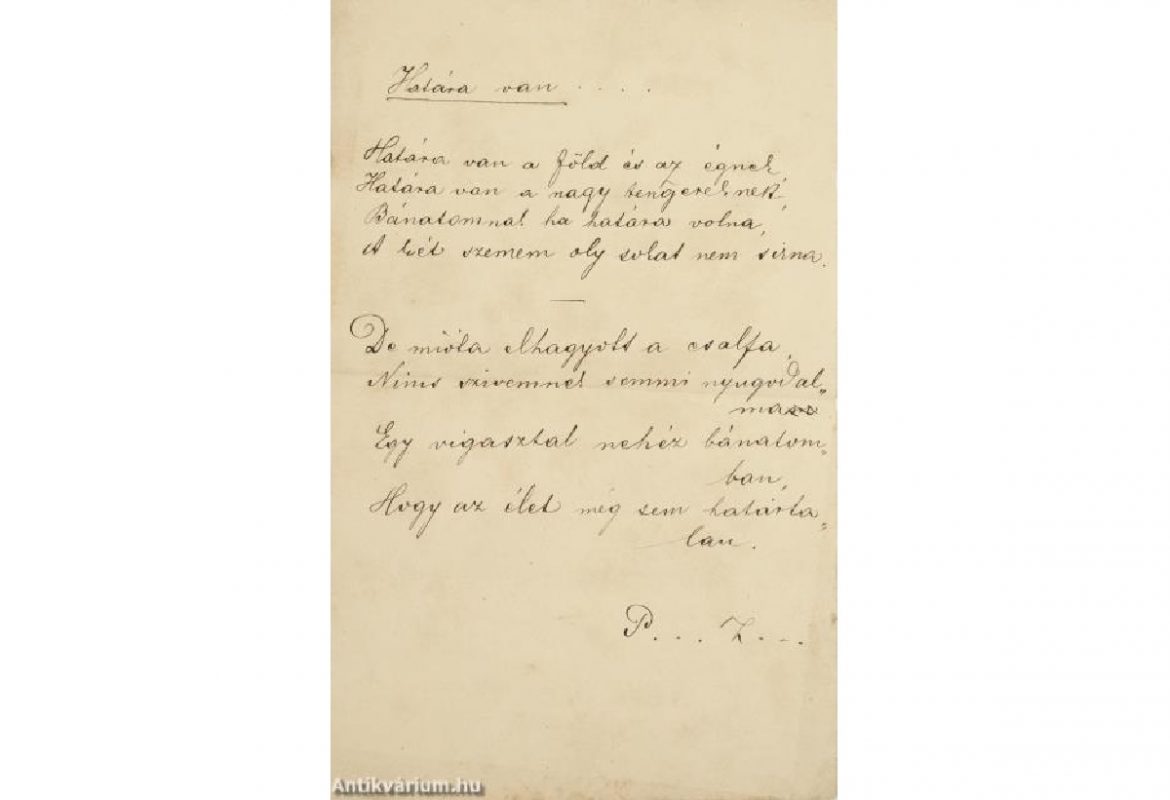 Határa van . . . .
Határa van a föld és az égnek,
Határa van a nagy tengereknek,
Bánatomnak ha határa volna,
A két szemem oly sokat nem sirna.
De mióta elhagyott a csalfa,
Nincs szivemnek semmi nyugodal=
ma
Egy vigasztal nehéz bánatom=
ban,
Hogy az élet még sem határta=
lan.
P... Z...
Antikvárium.hu